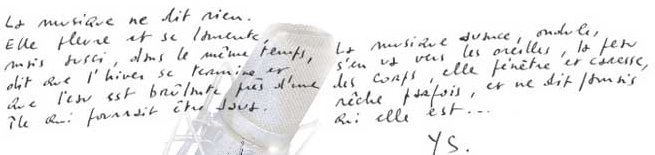 La musique ne dit rien.
Elle pleure et se lamente,
mais aussi, dans le même temps,
dit que l'hiver se termine et
que l'eau est brûlante près d'une
île qui pourrait être sous.
La musique avance, ondule,
s'en va vers les oreilles, la peau
des corps, elle pénètre et caresse,
rêche parfois, et ne dit jamais
qui elle est...
YS.